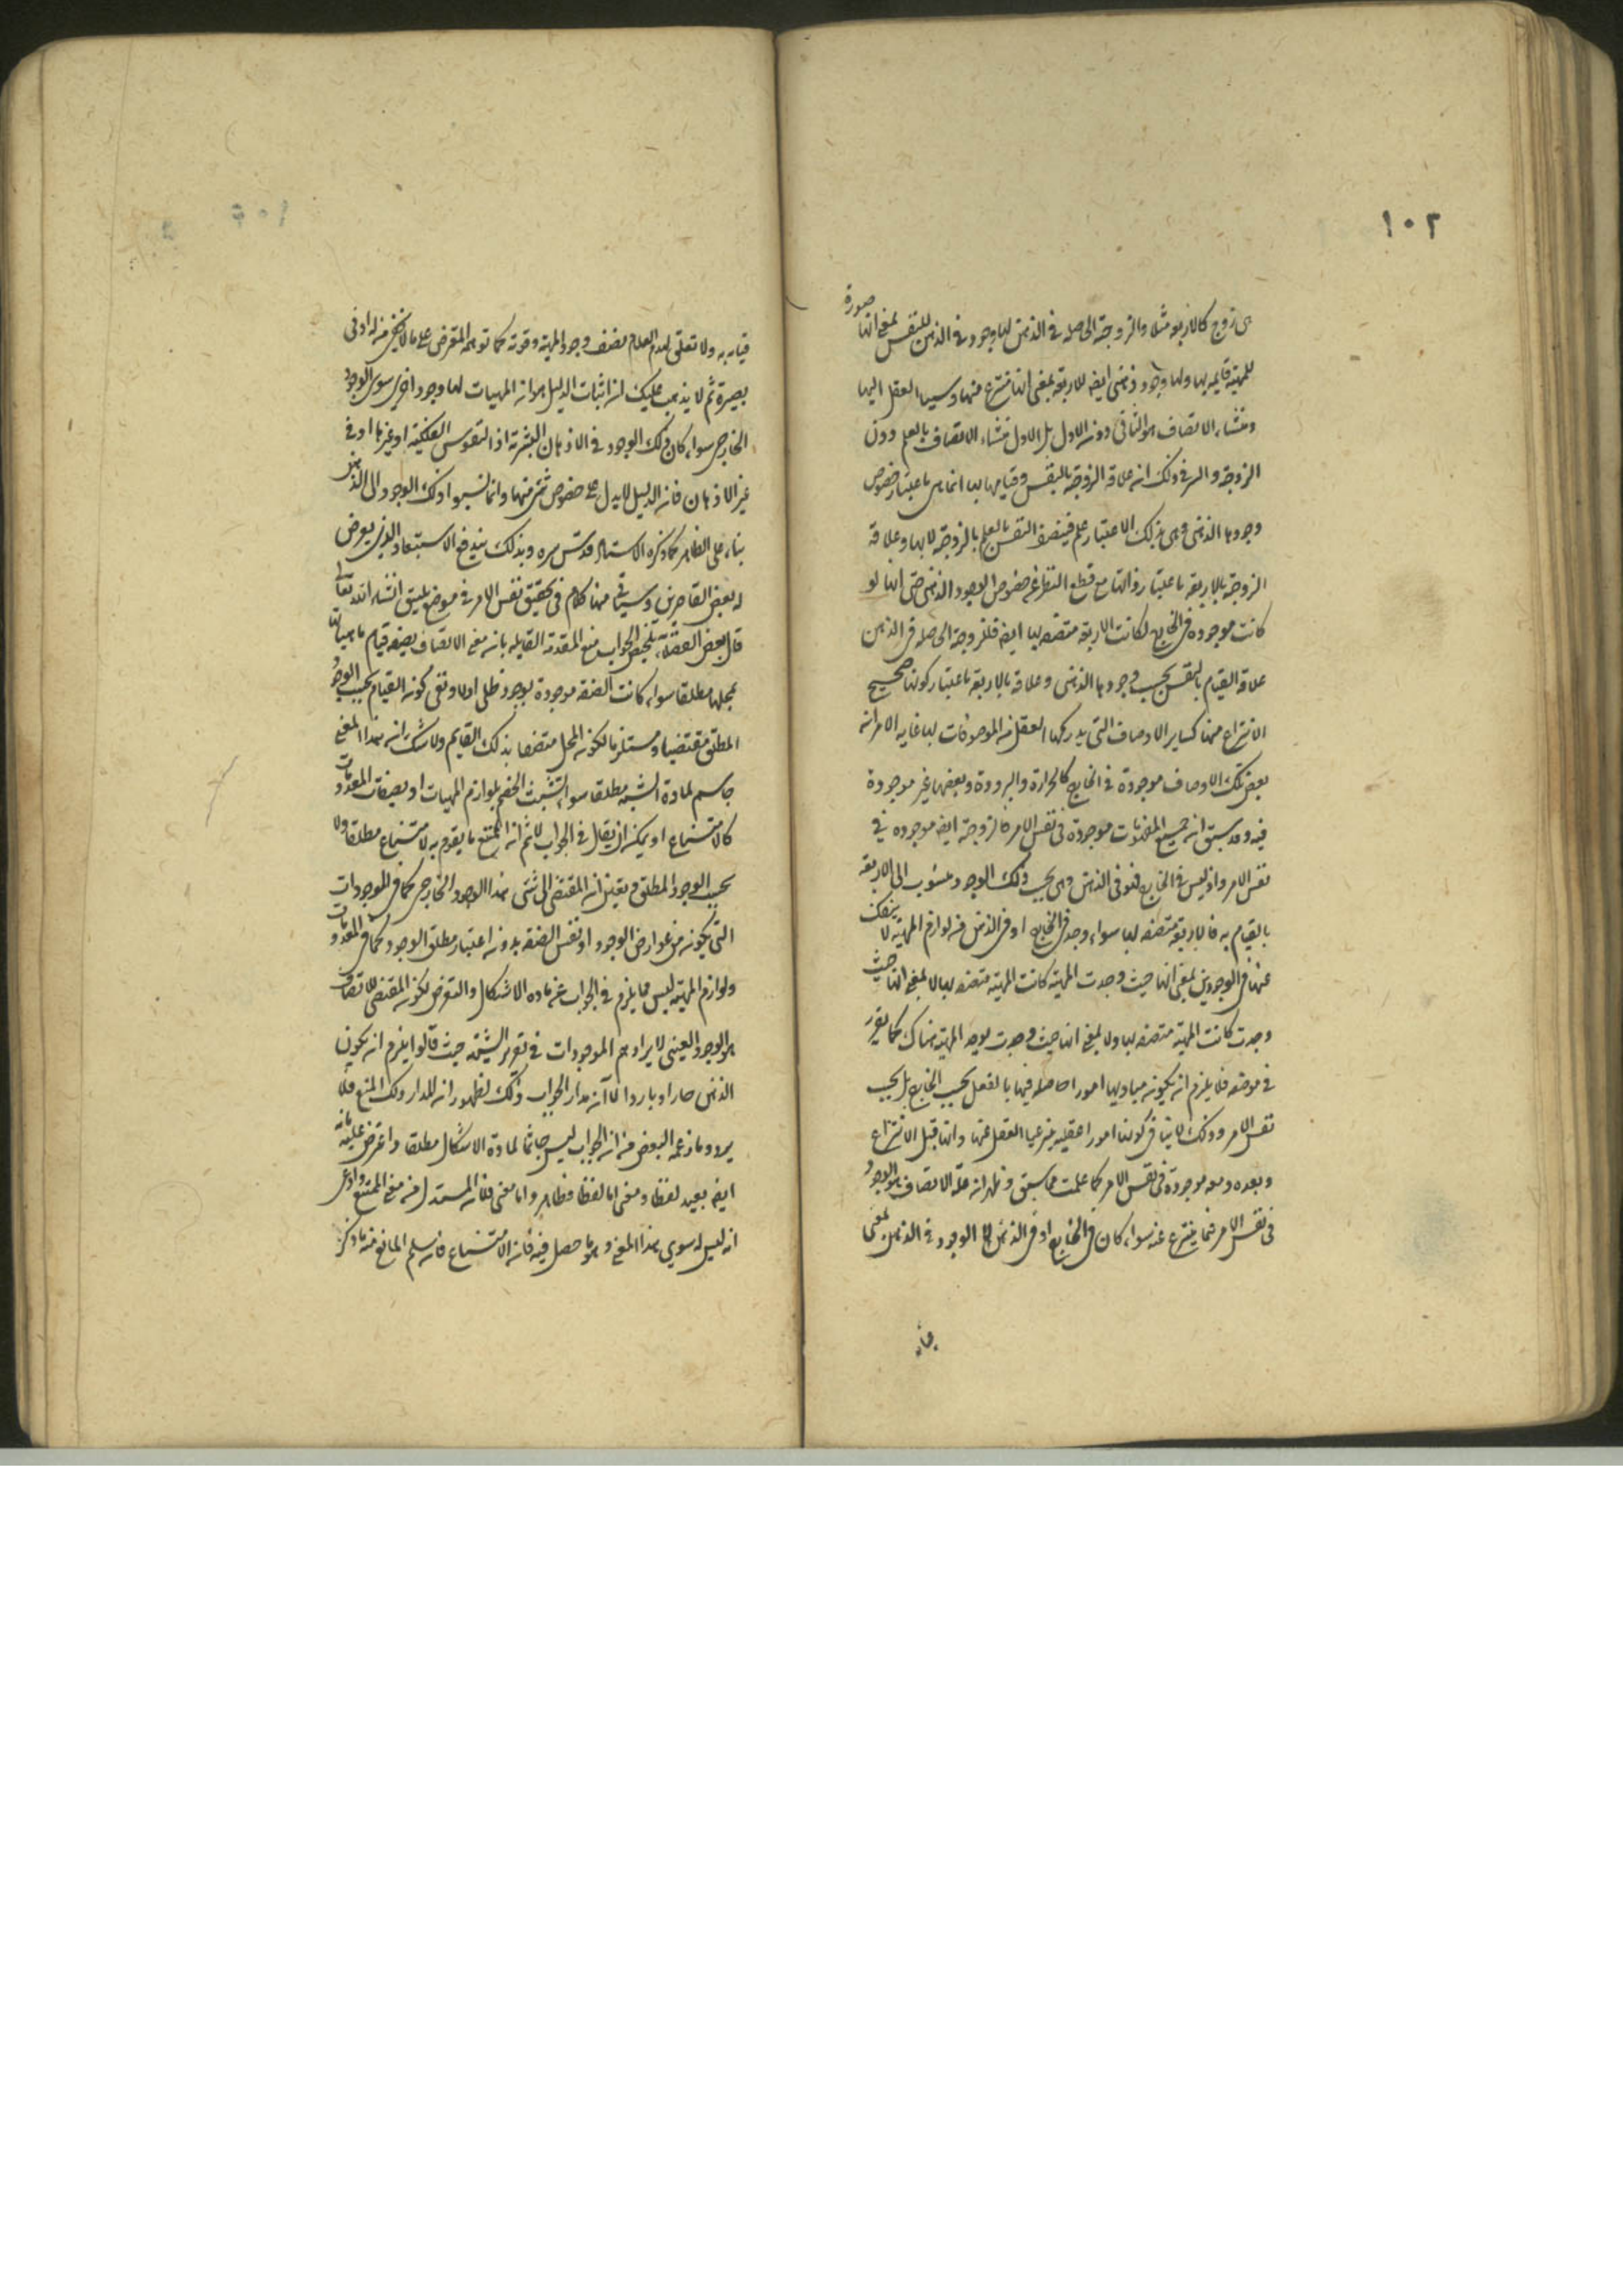 ١٠٢
هى زوج كالاربعة مثلا والزوجية الحاصلة فى الذهن لها وجود فى الذهن للنفس بمعنى انها صورة
للمهية قايمة بها ولها وجود ذهنى ايضا للاربعة بمعنى انها منتزع منها وسيما العقل اليها
ومنشاء الاتصاف هو الثانى دون الاول بل الاول منشاء الاتصاف بالعلم دون
الزوجية والسر فى ذلك ان علاقة الزوجية بالنفس وقيامها بها انما هى باعتبار خصوص
وجودها الذهنى وهى بذلك الاعتبار علم فيتصف النفس بالعلم بالزوجية لا بها وعلاقة
الزوجية بالاربعة باعتبار ذاتها مع قطع النظر عن خصوص الوجود الذهنى حتى انها لو
كانت موجودة فى الخارج لكانت الاربعة متصفة بها ايضا فللزوجية الحاصلة فى الذهن
علاقة القيام بالنفس بحسب وجودها الذهنى وعلاقة بالاربعة باعتبار كونها صحيح
الانتزاع منها كساير الاوصاف التى يدركها العقل من الموصوفات بها غاية الامر ان
بعض تلك الاوصاف موجودة فى الخارج كالحرارة والبرودة وبعضها غير موجودة
فيه وقد سبق ان جميع المفهومات موجودة فى نفس الامر فالزوجية ايضا موجودة فى
نفس الامر واذ ليس فى الخارج فهو فى الذهن وهى بحسب ذلك الوجود منسوب الى الاربعة
بالقيام به فالاربعة متصفة بها سواء وجد فى الخارج او فى الذهن فان لوازم المهية لا ينفك
عنها فى الوجودين بمعنى انها حيث وجدت المهية كانت المهية متصفة بها لا بمعنى انها حيث
وجدت كانت المهية متصفة بها ولا بمعنى انها حيث وجدت يوجد المهية هناك كما يقرر
فى موضعه فلا يلزم ان يكون مباديها امورا حاصلة فيها بالفعل بحسب الخارج بل بحسب
نفس الامر وذلك لا ينافى كونها امورا عقلية ينتزعها العقل عنها وانها قبل الانتزاع
وبعده ومعه موجودة فى نفس الامر كما علمت مما سبق وظهر ان علة الاتصاف هو الوجود
فى نفس الامر فيما ينتزع عنه سواء كان فى الخارج او فى الذهن لا الوجود فى الذهن بمعنى
قيامه به ولا تعلق لهذا الكلام بضعف وجود المهية وقوته كما توهمه المتعرض على ما لا يخفى من له ادنى
بصيرة ثم لا يذهب عليك ان اثبات الدليل هو ان المهيات لها وجود اخر سوى الوجود
الخارجى سواء كان ذلك الوجود فى الاذهان البشرية او النفوس الفلكية او غيرها او فى
غير الاذهان فان الدليل لا يدل على خصوص شئ منها وانما نسبوا ذلك الوجود الى الذهن
بناء على الظاهر كما ذكره الاستاد قدس سره وبذلك يندفع الاستبعاد الذى يعرض
لبعض القاصرين وسياتى منا كلام فى تحقيق نفس الامر فى موضع يليق انشاء الله تعالى
قال بعض الفضلاء تلخيص الجواب منع المقدمة القايلة بان معنى الاتصاف بصفة قيام ماهياتها
بمحلها مطلقا سواء كانت الصفة موجودة بوجود ظلى او لا ونفى كون القيام بحسب الوجود
المطلق مقتضيا ومستلزما لكون المحل متصفا بذلك القايم ولا شك ان هذا المعنى
حاسم لمادة الشبهة مطلقا سواء تشبث الخصم بلوازم المهيات او بصفات المعدومات
كالامتناع او يمكن ان يقال فى الجواب لا نم ان الممتنع ما يقوم به الامتناع مطلقا ولا
بحسب الوجود المطلق وتعيين ان المقتضى الى شئ هذا الوجود الخارجى كما فى الموجودات
التى يكون من عوارض الوجود او نفس الصفة بدون اعتبار مطلق الوجود كما فى المعدومات
ولوازم المهية ليس مما يلزم فى الجواب عن مادة الاشكال والتعرض لكون المقتضى للاتصاف
هو الوجود العينى لا يراد هم الموجودات فى تقرير الشبهة حيث قالوا يلزم ان يكون
الذهن حارا وباردا لا ان مدار الجواب ذلك لظهور ان المدار ذلك المنع فلا
يرد ما زعمه البعض من ان الجواب ليس حاسما لمادة الاشكال مطلقا واعترض عليه بانه
ايضا بعيد لفظا ومعنى اما لفظا فظاهر واما معنى فلان المستدل من معنى الممتنع وادعى
انه ليس له سوى هذا المعنى وهو ما حصل فيه فان الامتناع فان سلم المانع منه ما ذكر